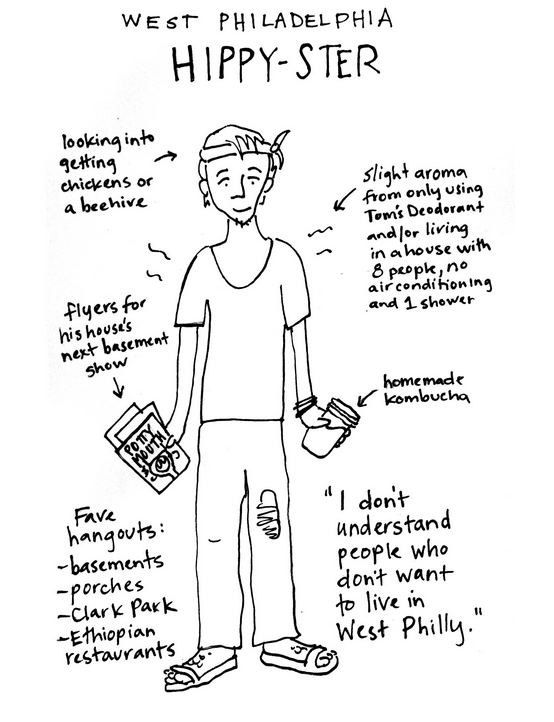 WEST PHILADELPHIA
HIPPY-STER
looking into
getting
chickens or
a beehive
slight aroma
from only using
Tom's Deodorant
and/or living
in a house with
8 people, no
air conditioning
and 1 shower
flyers for
his house's
next basement
show
homemade
kombucha
POTTY
MOUTH
Fave
hangouts:
-basements
-porches
-Clark Park
-Ethiopian
restaurants
"I don't
understand
people who
don't want
to live in
West Philly."